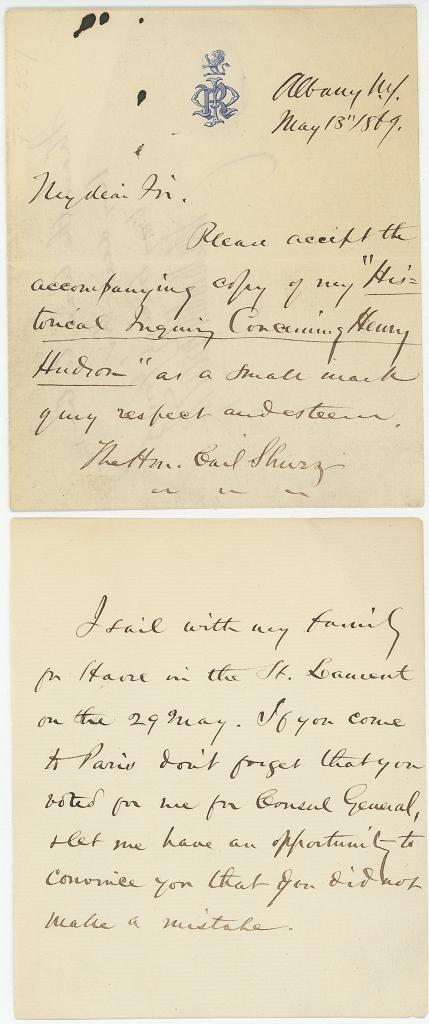 Albany N.Y.
May 13" 1869.
My dear Sir.
Please accept the
accompanying copy of my "His=
torical Inquiry Concerning Henry
Hudson" as a small mark
of my respect and esteem.
The Hon. Carl Shurz
I sail with my family
for Havre in the St. Laurent
on the 29 May. If you come
to Paris don't forget that you
voted for me for Consul General,
& let me have an opportunity to
convince you that you did not
make a mistake.